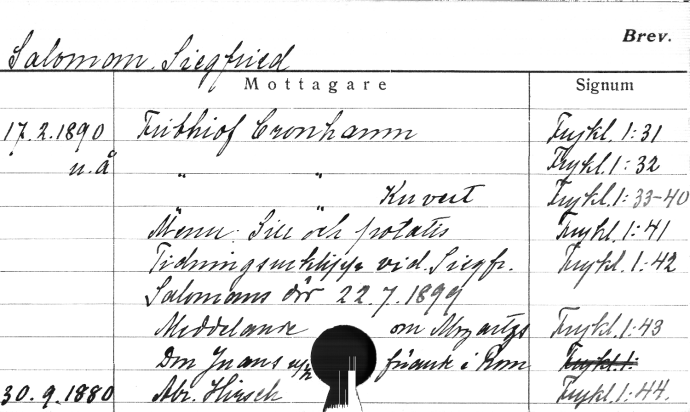 Brev.
Saloman, Siegfried
Mottagare Signum
17.2.1890 Frithiof Cronhamn Frykl. 1:31
u.å " " Frykl. 1:32
" " Kuvert Frykl. 1:33-40
Menu: Sill och potatis Frykl. 1:41
Tidningsurklipp vid Siegfr. Frykl. 1:42
Salomans död 22.7.1899
Meddelande om Mozarts Frykl. 1:43
Don Juans i Rom Frykl. 1:
30.9.1880 Abr. Hirsch Frykl. 1:44.